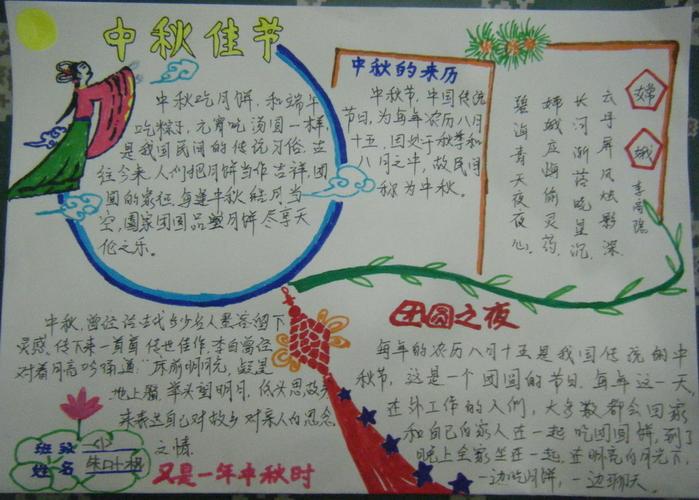 中秋佳节
中秋吃月饼,和端午
吃粽子,元宵吃汤圆一样,
是我国民间的传说习俗。古
往今来,人们把月饼当作吉祥,团
圆的象征。每逢中秋,皓月当
空,阖家团圆品月饼尽享天
伦之乐。
中秋的来历
中秋节,中国传统
节日,为每年农历八月
十五,因处于秋季和
八月之中,故民间
称为中秋。
嫦娥
李商隐
云母屏风烛影深
长河渐落晓星沉
嫦娥应悔偷灵药
碧海青天夜夜心
中秋,曾经给古代多少名人墨客留下
灵感,传下来一首首传世佳作,李白曾经
对着月亮吟诵道"床前明月光,疑是
地上霜,举头望明月,低头思故乡
来表达自己对故乡对亲人的思念
之情。
团圆之夜
每年的农历八月十五是我国传说的中
秋节,这是一个团圆的节日,每年这一天
在外工作的人们,大多数都会回家
和自己的家人在一起吃团圆饼,到了
晚上全家坐在一起,在明亮的月光下,
一边吃月饼,一边聊天。
班级
姓名
又是一年中秋时